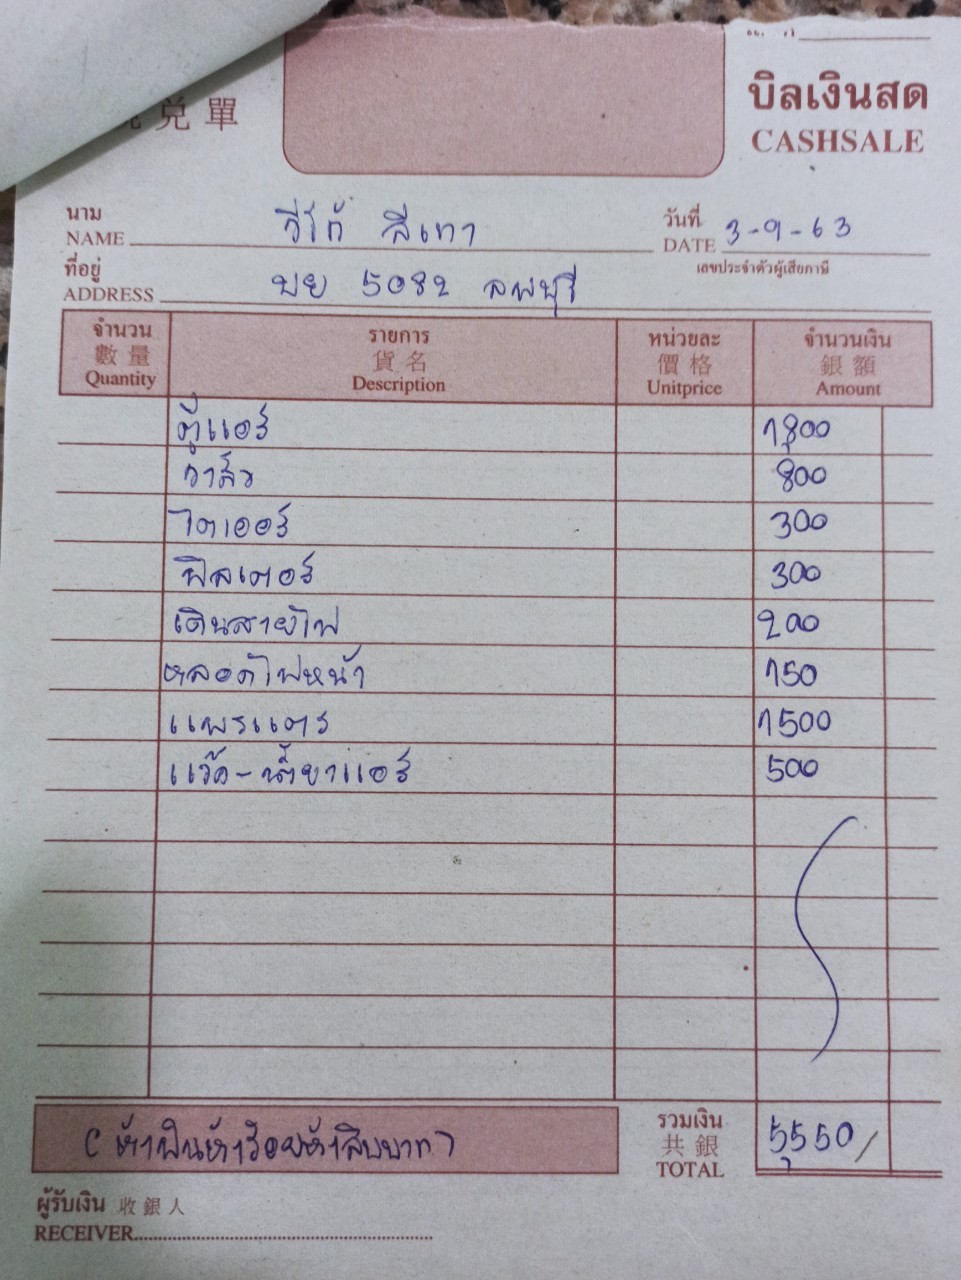 兑 單
บิลเงินสด
CASHSALE
นาม
NAME
วีโก้ สีเทา
วันที่
DATE
3-9-63
ที่อยู่
ADDRESS
บย 5082 ลพบุรี
เลขประจำตัวผู้เสียภาษี
จำนวน รายการ หน่วยละ จำนวนเงิน
數 量 貨 名 價 格 銀 額
Quantity Description Unitprice Amount
ตู้แอร์ 1,800
วาล์ว 800
ไดเออร์ 300
ฟิลเตอร์ 300
เดินสายไฟ 200
หลอดไฟหน้า 150
แพรแตร 1500
แว๊ค-น้ำยาแอร์ 500
(ห้าพันห้าร้อยห้าสิบบาท)
รวมเงิน
共 銀
TOTAL
5,550/
ผู้รับเงิน 收 銀 人
RECEIVER